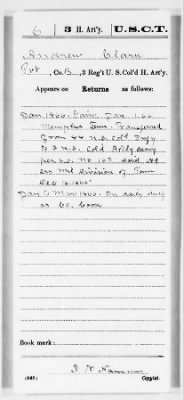 6 3 H. Art'y. U.S.C.T.
Andrew Clark
Pvt, Co. B, 3 Reg't U. S. Col'd H. Art'y.
Appears on
Returns as follows:
Jan 1866. Gain, Jan 1.66
Memphis Tenn. Transferred
from 44 U.S. Cold Infy
to 3 U.S. Cold Artly
per S.O. No 163
Mil Division of Tenn
Dec 16 1865
Jan to Mar 1866. On daily duty
as Co. Cook
Book mark:
(546) Copyist.